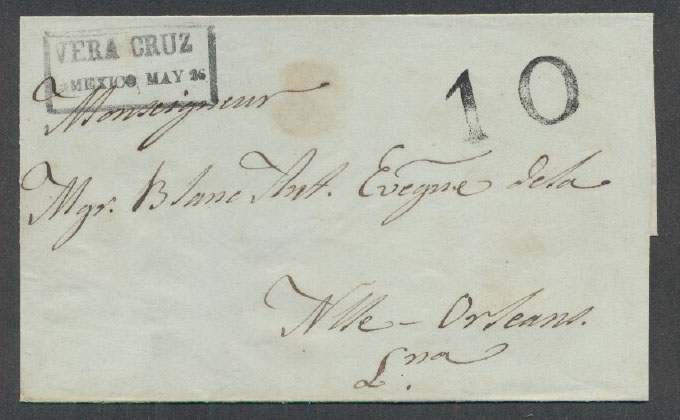 VERA CRUZ
MEXICO MAY 26
10
Monseigneur
Mgr. Blanc Ant. Evêque de la
Nlle - Orleans.
Lna